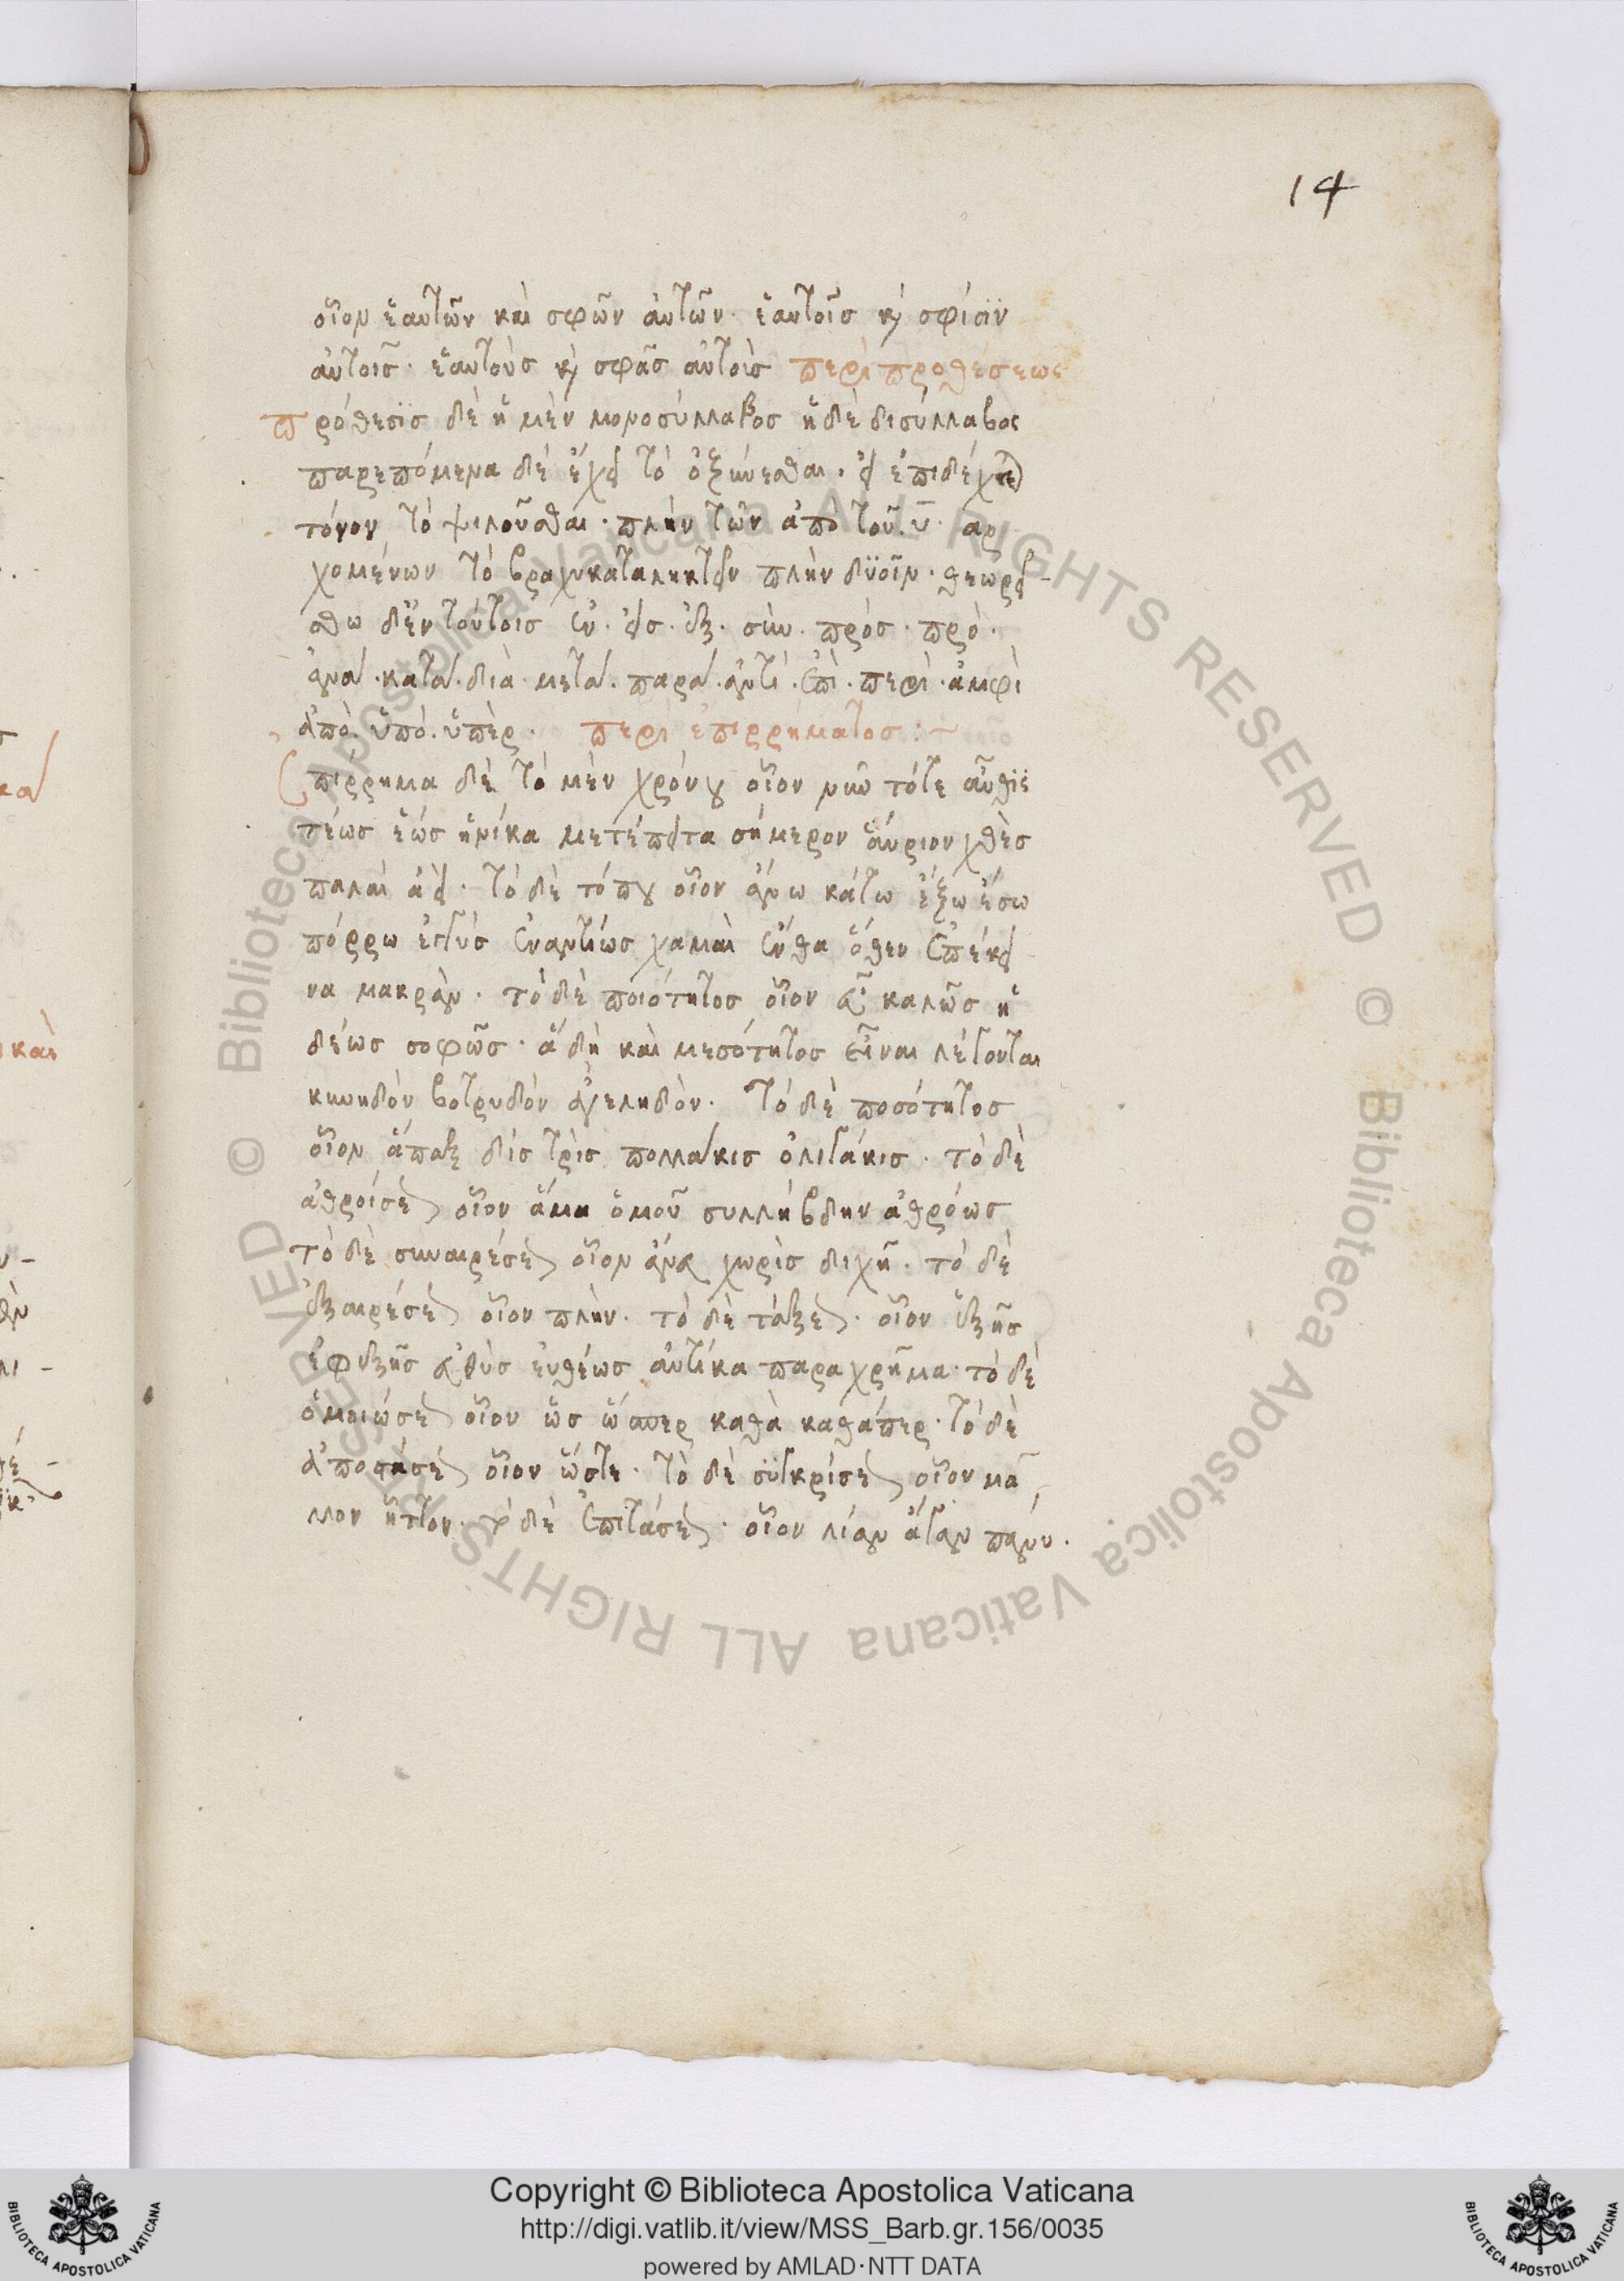 14
οἷον ἑαυτῶν καὶ σφῶν αὐτῶν· ἑαυτοῖσ κ̀ σφίσϊν
αὐτοισ͂· ἑαυτοὺσ κ̀ σφᾶσ αὐτοὺσ περὶ προθέσεως
πρόθεσϊσ δὲ ἡ μὲν μονοσύλλαβοσ ἡ δὲ δισύλλαβος
παρεπόμενα δὲ ἔχει τὸ ὀξύνεσθαι· εἰ ἐπιδέχεται
τόνον τὸ ψιλοῦσθαι· πλὴν τῶν ἀπὸ τοῦ υ̅· αρ
χομένων τὸ βραχυκαταληκτεῖν πλὴν δϋοῖν· θεωρεί-
σθω δ' ἐν τούτοισ ἐν· εἰσ· ἐξ· σὺν· πρόσ· πρό·
ἀνα· κατα· διὰ· μετα· παρα· ἀντί· ἐπὶ· περὶ· ἀμφὶ
ἀπὸ· ὑπό· ὑπὲρ· περὶ ἐπιρρήματοσ:~
Ἐπίρρημα δὲ τὸ μὲν χρόνου οἷον νῦν τότε αὖθις
τέωσ ἕωσ ἡνίκα μετέπειτα σήμερον αὔριον χθὲσ
παλαι ἀεί· τὸ δὲ τόπου οἷον ἄνω κάτω ἔξω ἔσω
πόρρω ἐγγύσ ἐναντίωσ χαμαὶ ἔνθα ὅθεν ἐπέκει
να μακρὰν· τὸ δὲ ποιότητοσ οἷον εὖ καλῶσ ἡ
δέωσ σοφῶσ· ἃ δὴ καὶ μεσότητοσ εἶναι λέγονται
κυνηδὸν βοτρυδὸν ἀγεληδὸν· Τὸ δὲ ποσότητοσ
οἷον ἅπαξ δίσ τρὶσ πολλακισ ὀλιγάκισ· τὸ δὲ
ἀθροίσεωσ οἷον ἅμα ὁμοῦ συλλήβδην ἀθρόωσ
τὸ δὲ συναιρέσεωσ οἷον ἄνευ χωρὶσ διχῆ· τὸ δὲ
ἐξαιρέσεωσ οἷον πλὴν· τὸ δὲ τάξεωσ· οἷον ἑξῆσ
ἐφεξῆσ εὐθὺσ ευθέωσ αὐτίκα παραχρῆμα· τὸ δὲ
ὁμοιώσεωσ οἷον ὡσ ὥσπερ καθὰ καθάπερ· τὸ δὲ
ἀποστάσεωσ οἷον ὥστε· τὸ δὲ συγκρίσεωσ οἷον μᾶ
λλον ἧττον· τὸ δὲ ἐπιτάσεωσ· οἷον λίαν ἄγαν πανυ·
Copyright © Biblioteca Apostolica Vaticana
http://digi.vatlib.it/view/MSS_Barb.gr.156/0035
powered by AMLAD·NTT DATA